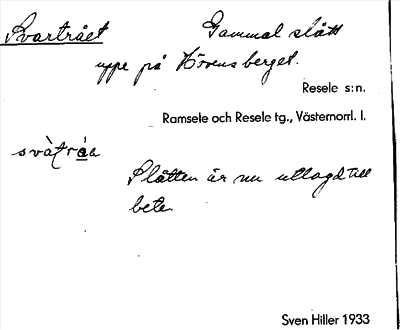 Svartrået Gammal slått
uppe på Kövensberget.
Resele s:n.
Ramsele och Resele tg., Västernorrl. l.
svàtrá̱a
Slåtten är nu utlagd till
bete
Sven Hiller 1933